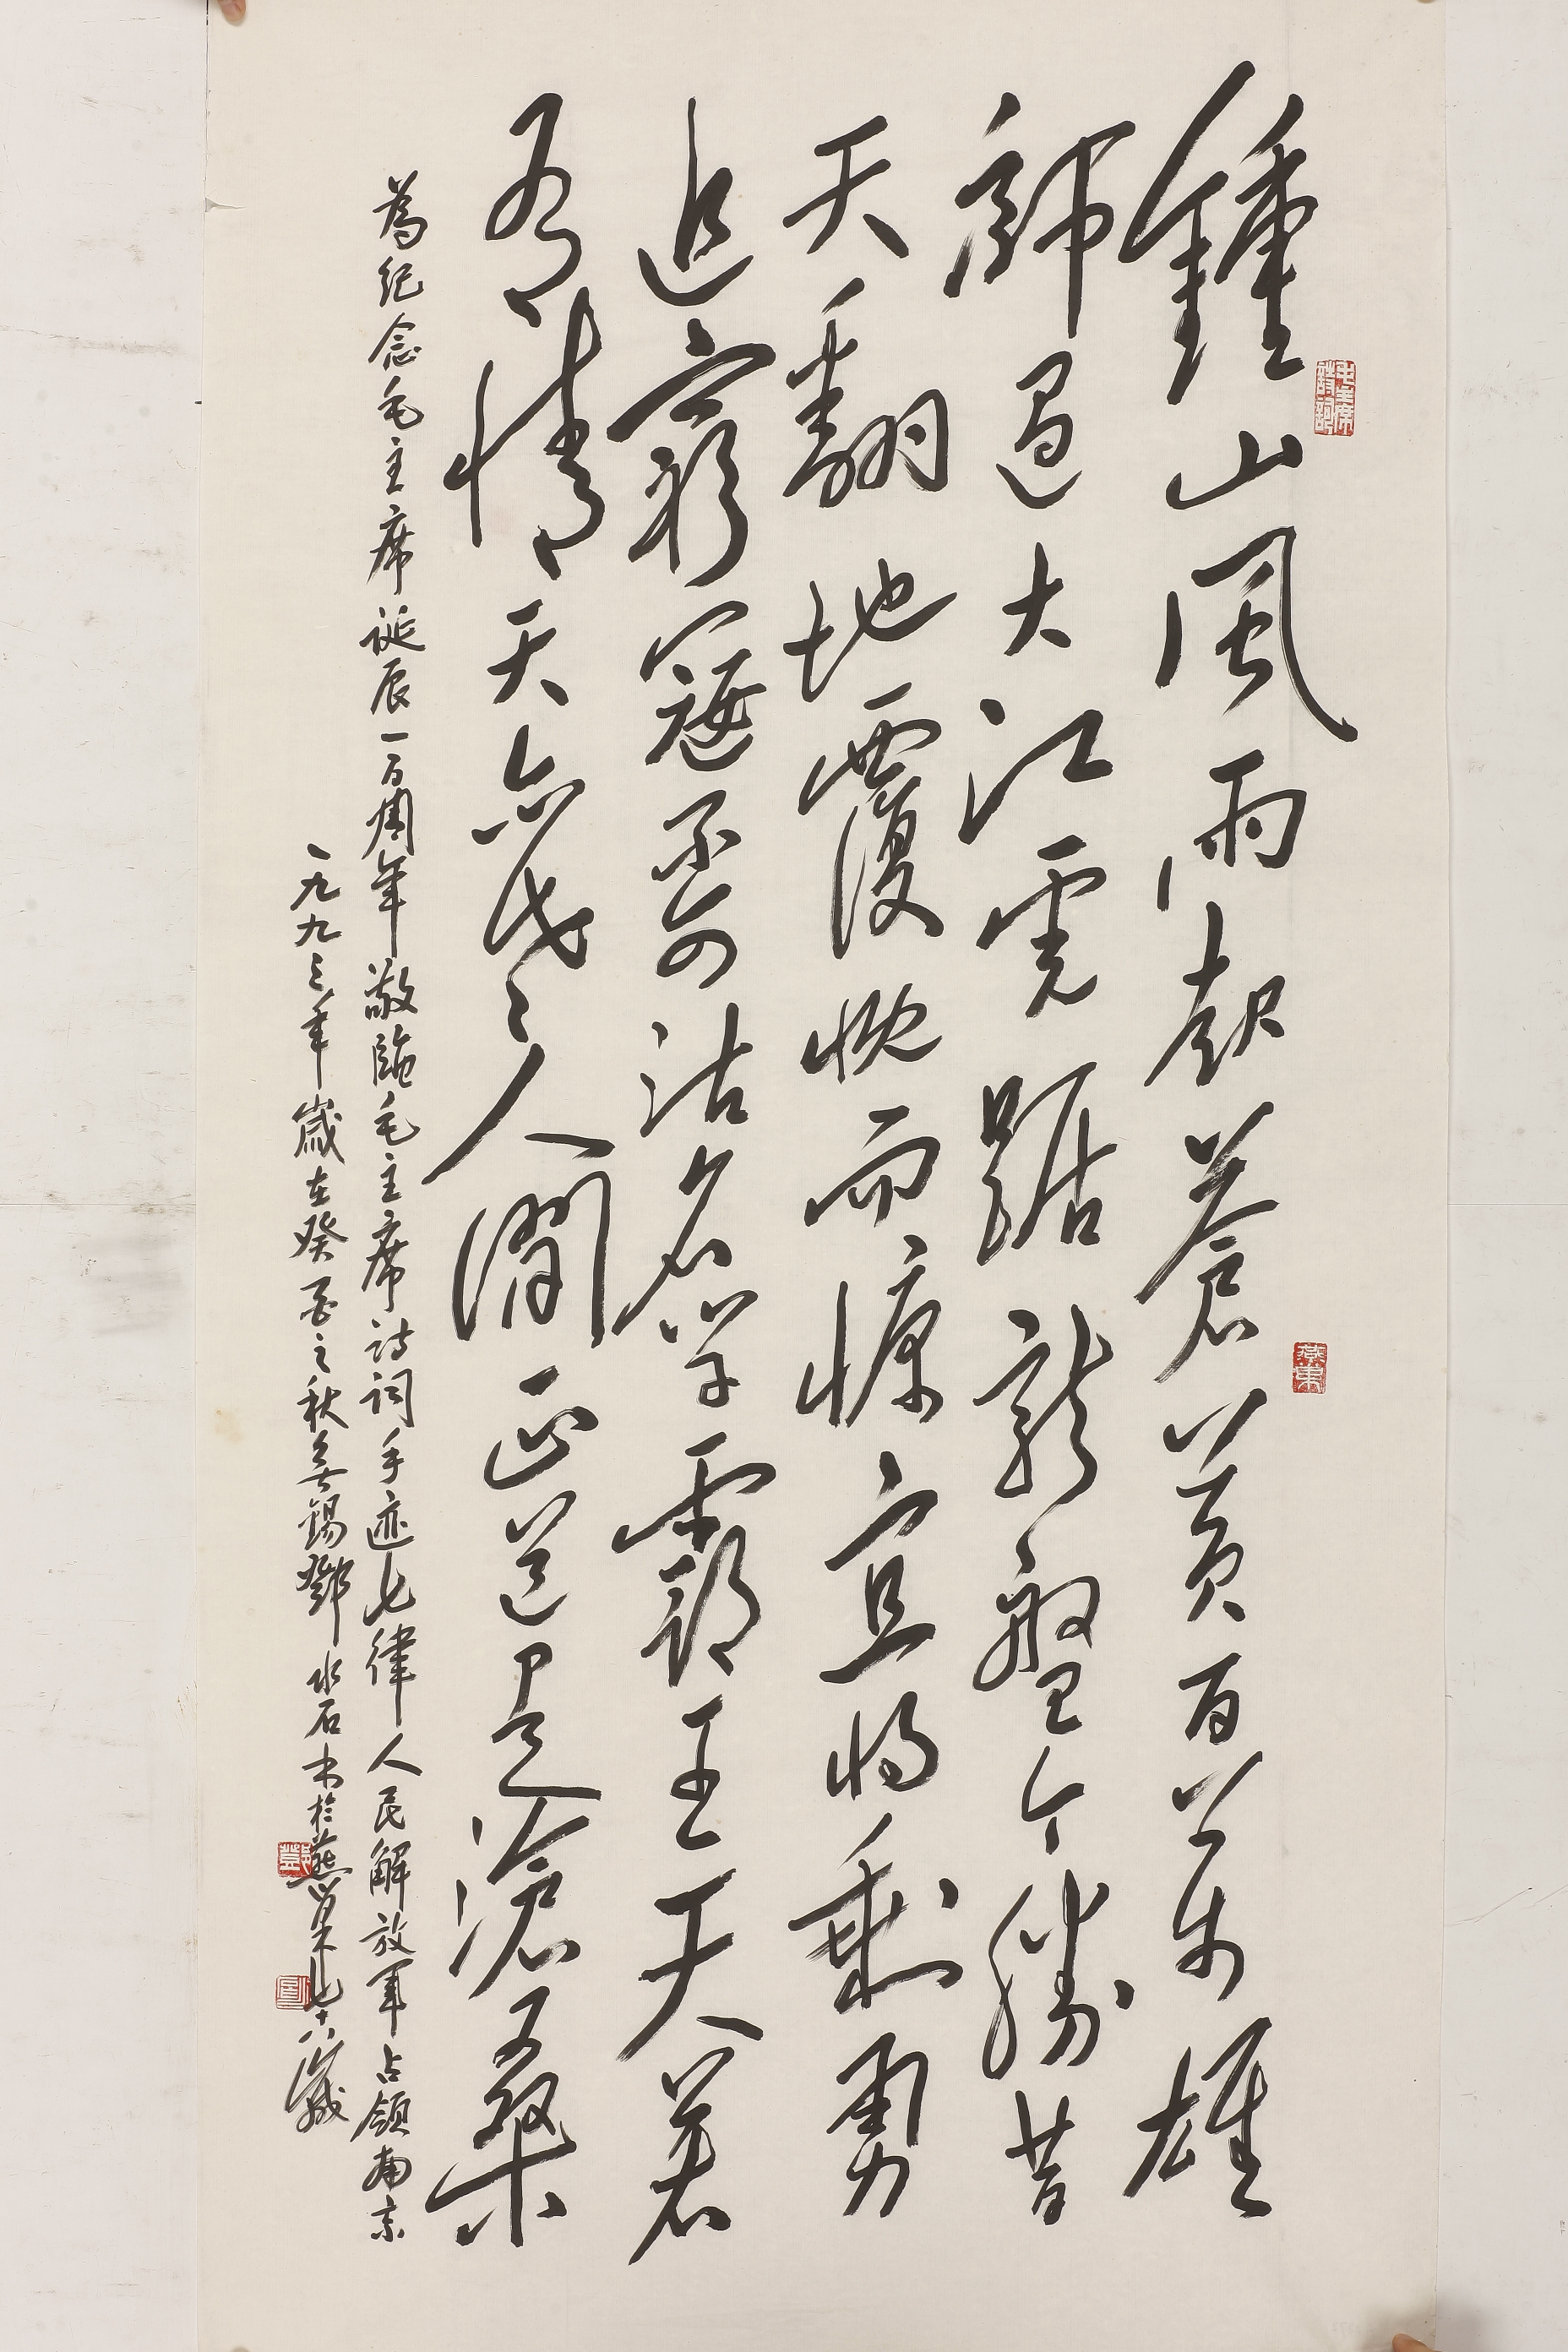 毛主席詩詞
鍾山風雨起蒼黃百萬雄
師過大江虎踞龍盤今勝昔
天翻地覆慨而慷宜將剩勇
追窮寇不可沽名學霸王天若
有情天亦老人間正道是滄桑
為紀念毛主席誕辰一百周年敬臨毛主席詩詞手迹七律人民解放軍占領南京
一九九三年歲在癸酉之秋無錫鄧水石書於燕七十八歲